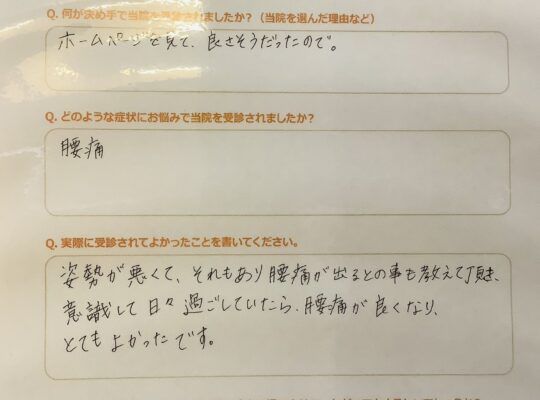 Q. 何が決め手で当院を受診されましたか?(当院を選んだ理由など)
ホームページを見て、良さそうだったので。
Q. どのような症状にお悩みで当院を受診されましたか?
腰痛
Q. 実際に受診されてよかったことを書いてください。
姿勢が悪くて、それもあり腰痛が出るとの事も教えて頂き、
意識して日々過ごしていたら、腰痛が良くなり、
とてもよかったです。